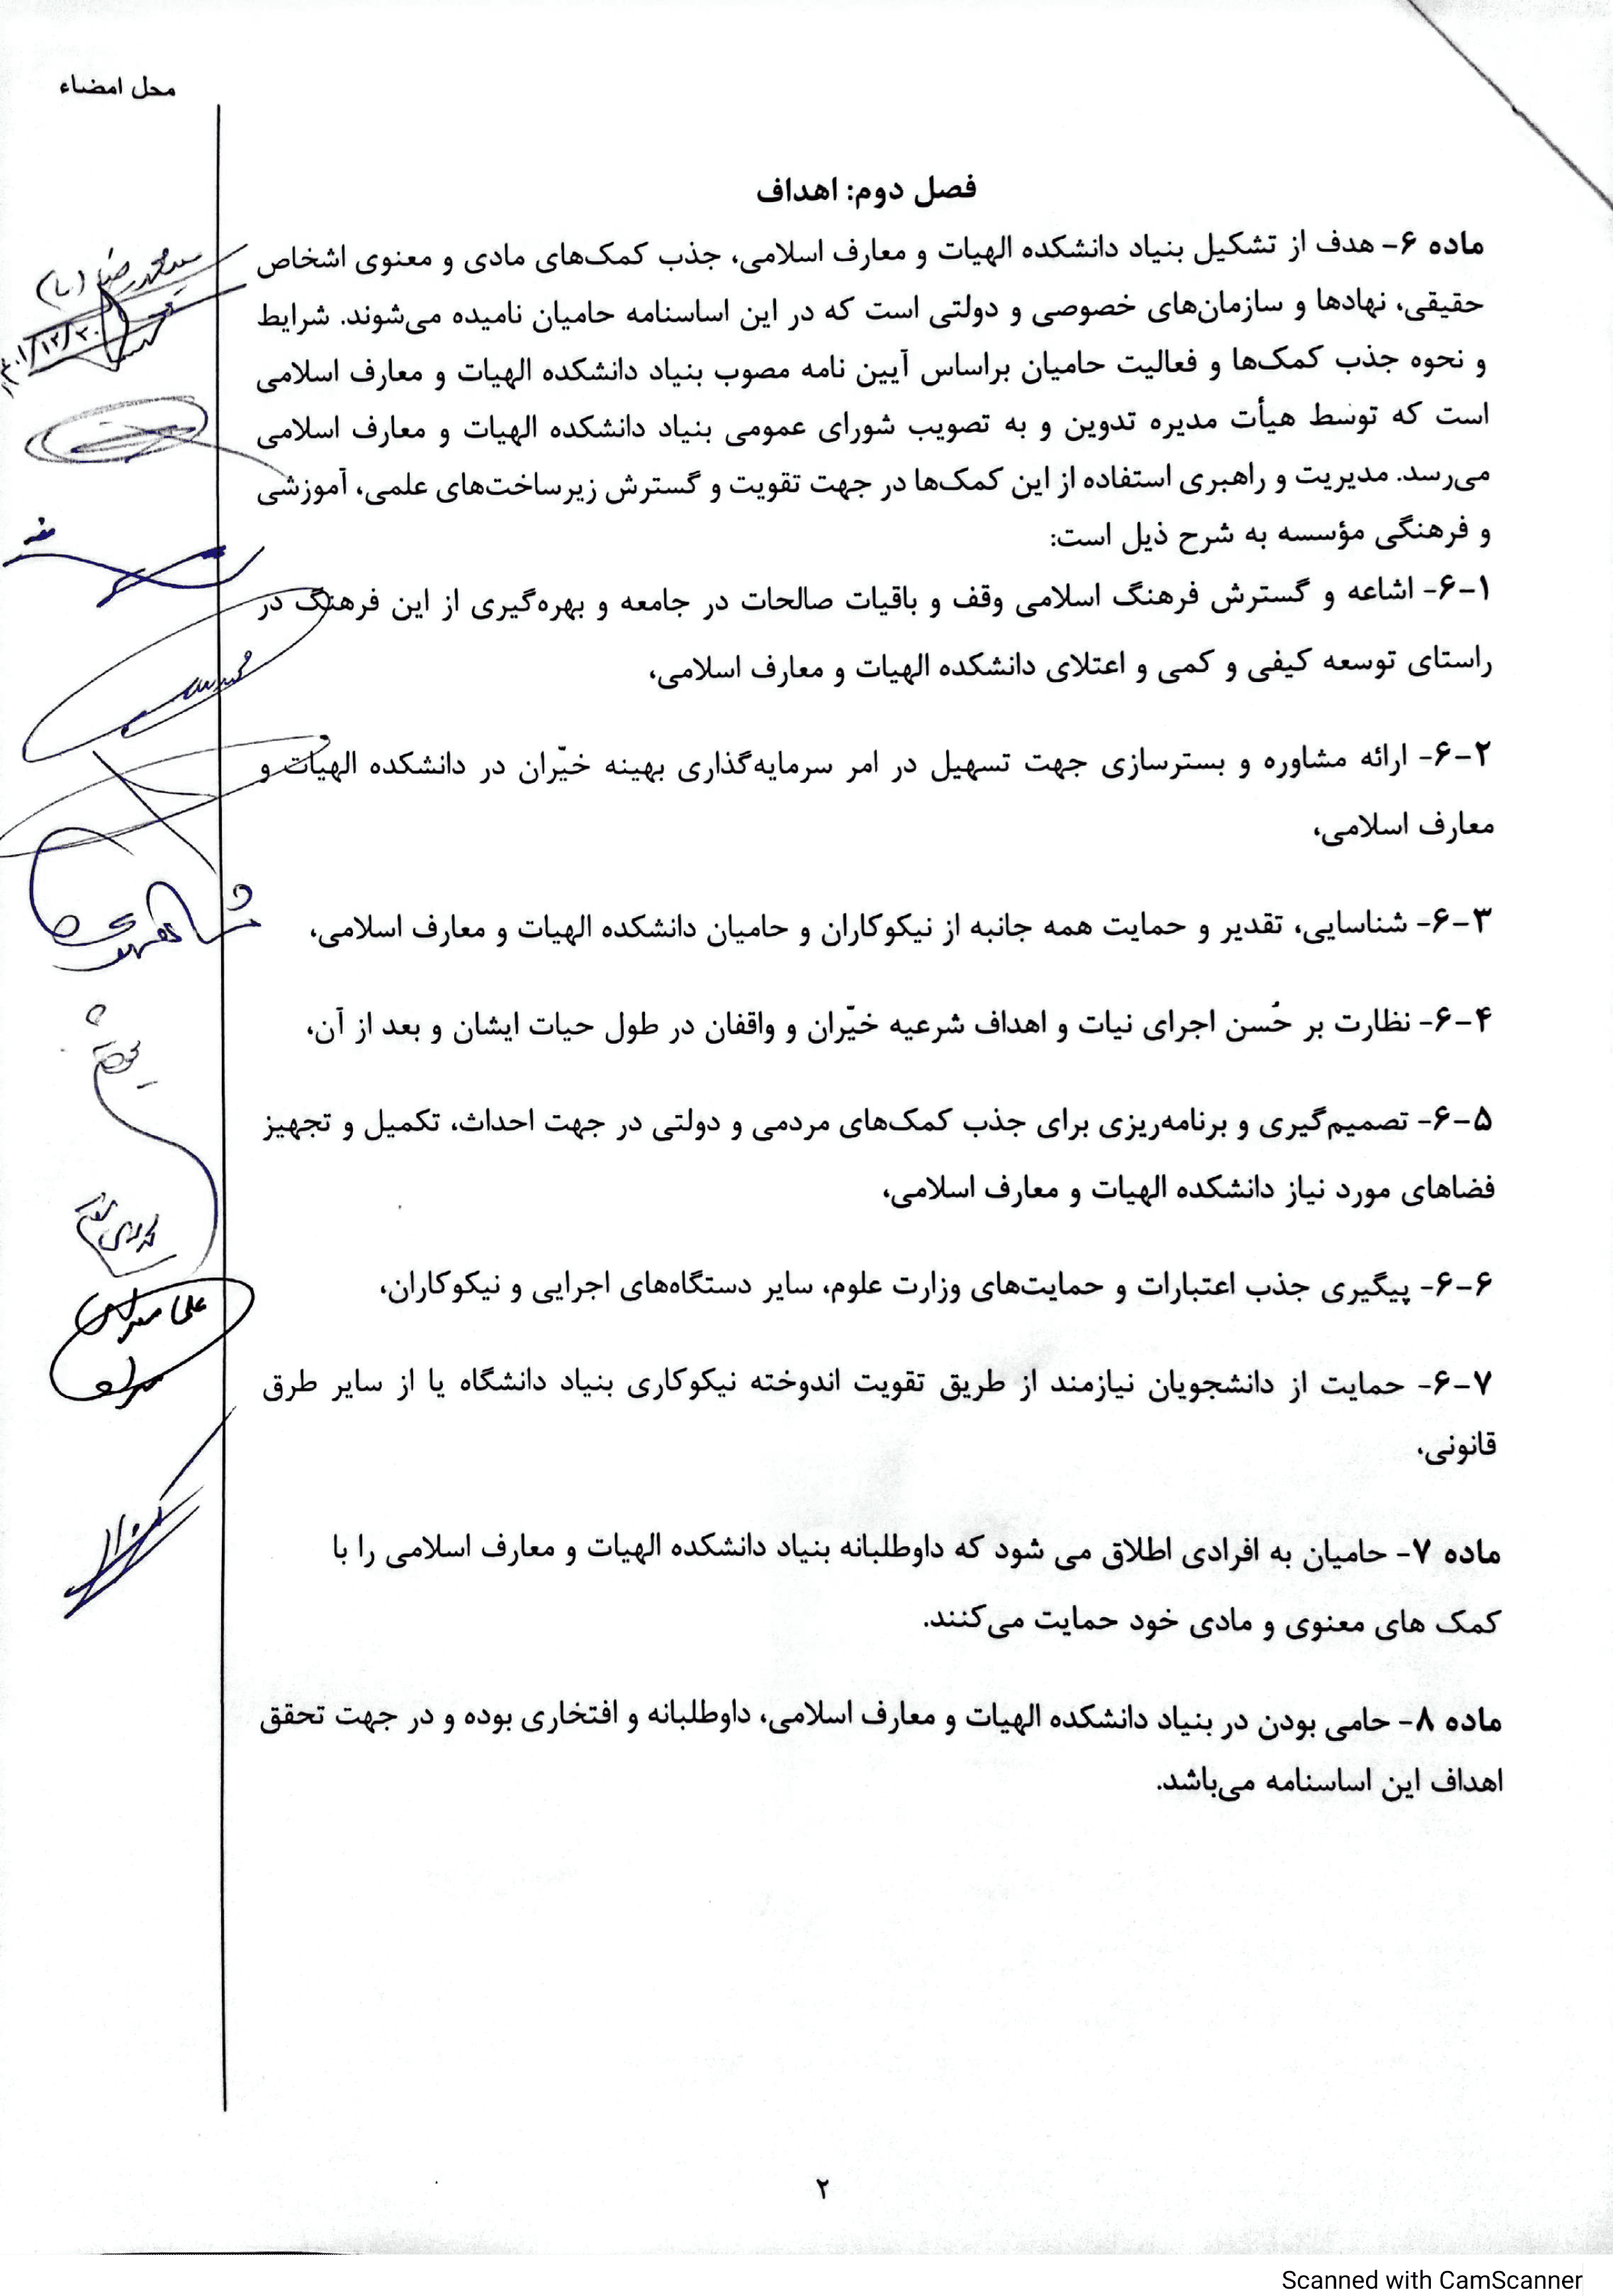 محل امضاء
فصل دوم: اهداف
ماده ۶- هدف از تشکیل بنیاد دانشکده الهیات و معارف اسلامی، جذب کمک‌های مادی و معنوی اشخاص
حقیقی، نهادها و سازمان‌های خصوصی و دولتی است که در این اساسنامه حامیان نامیده می‌شوند. شرایط
و نحوه جذب کمک‌ها و فعالیت حامیان براساس آیین نامه مصوب بنیاد دانشکده الهیات و معارف اسلامی
است که توسط هیأت مدیره تدوین و به تصویب شورای عمومی بنیاد دانشکده الهیات و معارف اسلامی
می‌رسد. مدیریت و راهبری استفاده از این کمک‌ها در جهت تقویت و گسترش زیرساخت‌های علمی، آموزشی
و فرهنگی مؤسسه به شرح ذیل است:
۶-۱- اشاعه و گسترش فرهنگ اسلامی وقف و باقیات صالحات در جامعه و بهره‌گیری از این فرهنگ در
راستای توسعه کیفی و کمی و اعتلای دانشکده الهیات و معارف اسلامی،
۶-۲- ارائه مشاوره و بسترسازی جهت تسهیل در امر سرمایه‌گذاری بهینه خیّران در دانشکده الهیات و
معارف اسلامی،
۶-۳- شناسایی، تقدیر و حمایت همه جانبه از نیکوکاران و حامیان دانشکده الهیات و معارف اسلامی،
۶-۴- نظارت بر حُسن اجرای نیات و اهداف شرعیه خیّران و واقفان در طول حیات ایشان و بعد از آن،
۶-۵- تصمیم‌گیری و برنامه‌ریزی برای جذب کمک‌های مردمی و دولتی در جهت احداث، تکمیل و تجهیز
فضاهای مورد نیاز دانشکده الهیات و معارف اسلامی،
۶-۶- پیگیری جذب اعتبارات و حمایت‌های وزارت علوم، سایر دستگاه‌های اجرایی و نیکوکاران،
۶-۷- حمایت از دانشجویان نیازمند از طریق تقویت اندوخته نیکوکاری بنیاد دانشگاه یا از سایر طرق
قانونی،
ماده ۷- حامیان به افرادی اطلاق می شود که داوطلبانه بنیاد دانشکده الهیات و معارف اسلامی را با
کمک های معنوی و مادی خود حمایت می‌کنند.
ماده ۸- حامی بودن در بنیاد دانشکده الهیات و معارف اسلامی، داوطلبانه و افتخاری بوده و در جهت تحقق
اهداف این اساسنامه می‌باشد.
۲
Scanned with CamScanner